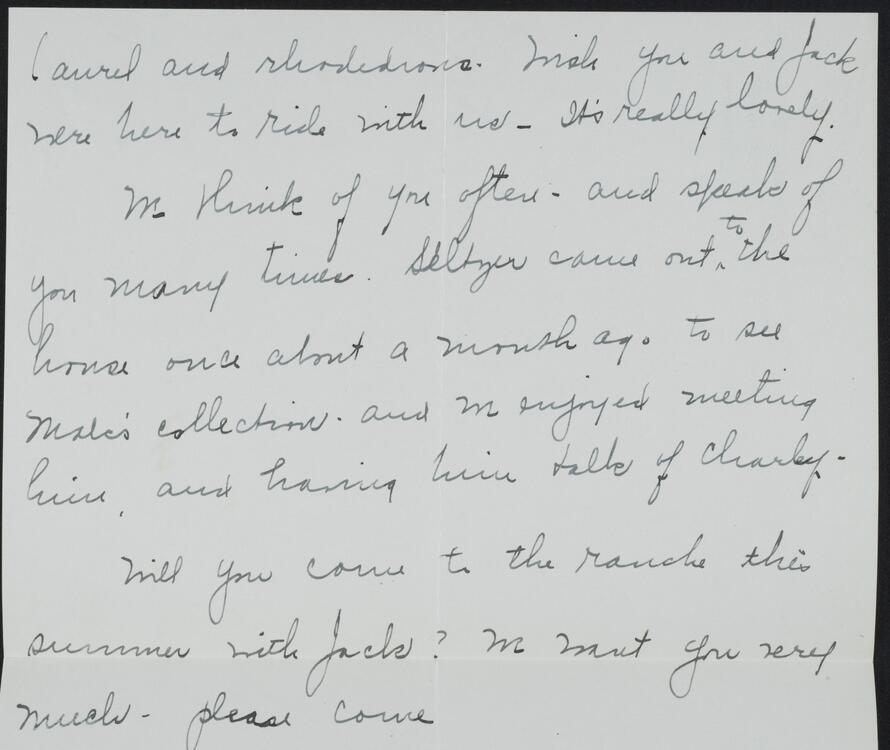 laurel and rhodedrons. Wish you and Jack
were here to ride with us - It's really lovely.
We think of you often - and speak of
you many times. Seltzer came out to the
house once about a month ago to see
Malc's collection - and we enjoyed meeting
him, and having him talk of Charley -
Will you come to the ranche this
summer with Jack? We want you very
much - please come